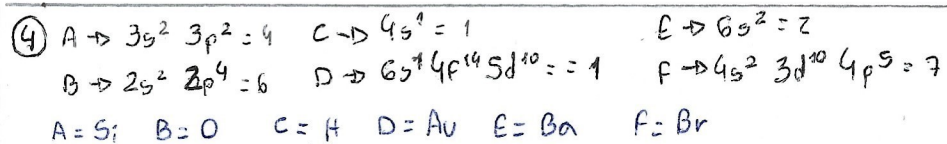 ④ A → 3s² 3p² = 4 C → 4s¹ = 1 E → 6s² = 2
B → 2s² 2p⁴ = 6 D → 6s¹ 4f¹⁴ 5d¹⁰ = = 1 F → 4s² 3d¹⁰ 4p⁵ = 7
A = Si B = O C = H D = Au E = Ba F = Br